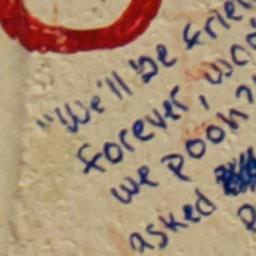 "We'll be Frie
forever, won
we pooh?
asked